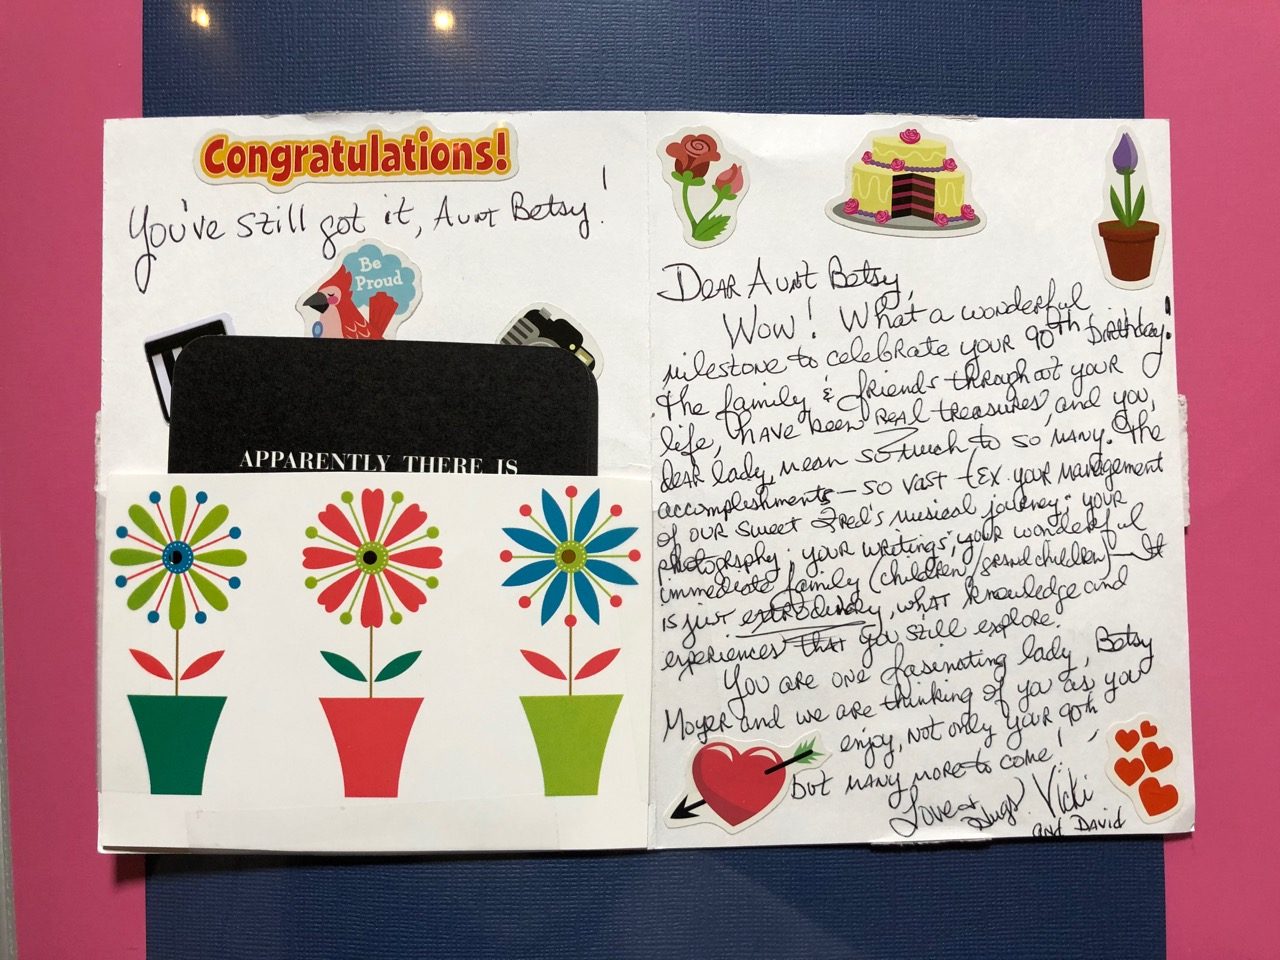 Congratulations!
You've still got it, Aunt Betsy!
Be
Proud
APPARENTLY THERE IS
Dear Aunt Betsy,
Wow! What a wonderful
milestone to celebrate your 90th birthday!
The family & friends throughout your
life, have been real treasures, and you,
dear lady, mean so much, to so many. The
accomplishments — so vast - Ex. your management
of our sweet Fred's musical journey; your
photography; your writings; your wonderful
immediate family (children/grandchildren) — It
is just extrodinary, what knowledge and
experiences that you still explore.
You are one fasinating lady, Betsy
Moyer and we are thinking of you as you
enjoy, not only your 90th,
but many more to come!
Love & Hugs! Vicki
and David